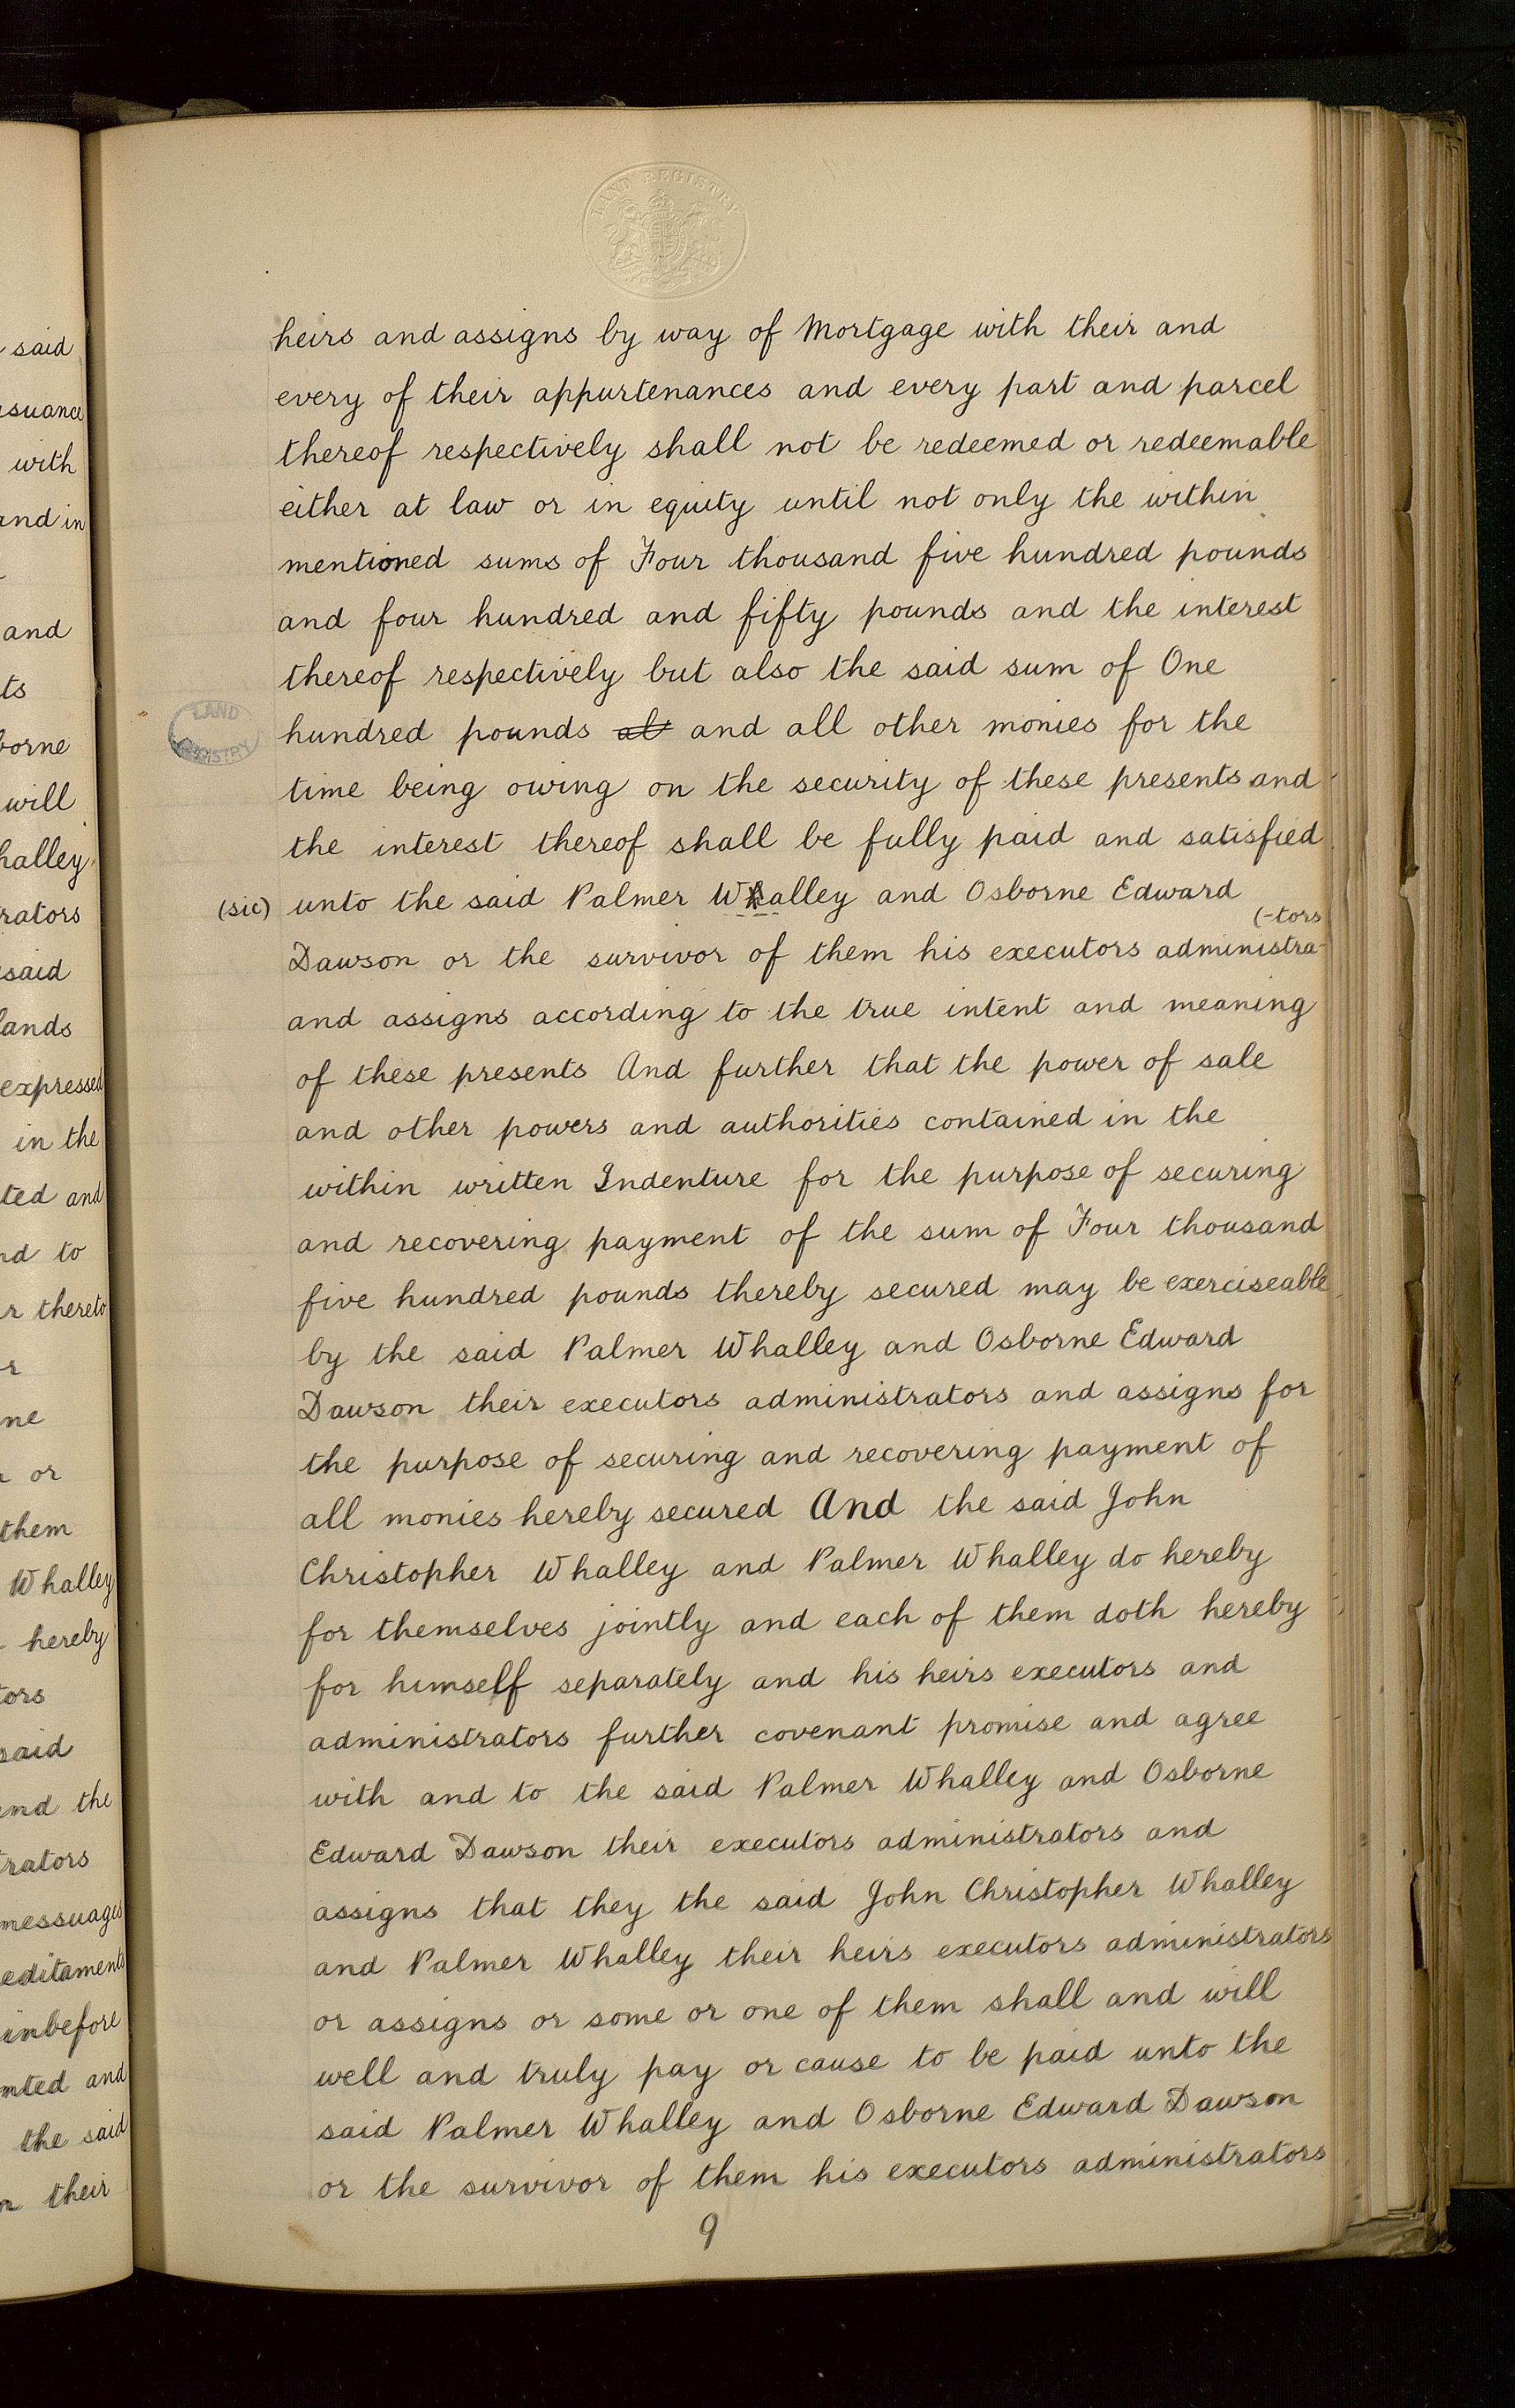 LAND REGISTRY
heirs and assigns by way of Mortgage with their and
every of their appurtenances and every part and parcel
thereof respectively shall not be redeemed or redeemable
either at law or in equity until not only the within
mentioned sums of Four thousand five hundred pounds
and four hundred and fifty pounds and the interest
thereof respectively but also the said sum of One
LAND REGISTRY
hundred pounds al and all other monies for the
time being owing on the security of these presents and
the interest thereof shall be fully paid and satisfied
(sic) unto the said Palmer Whalley and Osborne Edward
(-tors
Dawson or the survivor of them his executors administra-
and assigns according to the true intent and meaning
of these presents And further that the power of sale
and other powers and authorities contained in the
within written Indenture for the purpose of securing
and recovering payment of the sum of Four thousand
five hundred pounds thereby secured may be exerciseable
by the said Palmer Whalley and Osborne Edward
Dawson their executors administrators and assigns for
the purpose of securing and recovering payment of
all monies hereby secured And the said John
Christopher Whalley and Palmer Whalley do hereby
for themselves jointly and each of them doth hereby
for himself separately and his heirs executors and
administrators further covenant promise and agree
with and to the said Palmer Whalley and Osborne
Edward Dawson their executors administrators and
assigns that they the said John Christopher Whalley
and Palmer Whalley their heirs executors administrators
or assigns or some or one of them shall and will
well and truly pay or cause to be paid unto the
said Palmer Whalley and Osborne Edward Dawson
or the survivor of them his executors administrators
9